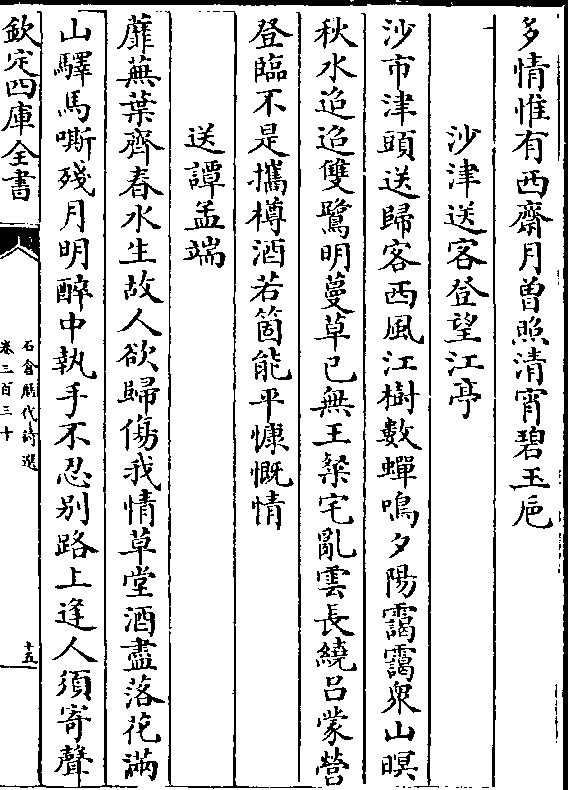 多情惟有西齋月曽照清宵碧玉巵
沙津送客登望江亭
沙市津頭送歸客西風江樹數蟬鳴夕陽靄靄衆山暝
秋水迢迢雙鷺明蔓草已無王粲宅亂雲長繞吕蒙營
登臨不是攜樽酒若箇能平慷慨情
送譚孟端
蘼蕪葉齊春水生故人欲歸傷我情草堂酒盡落花滿
山驛馬嘶殘月明醉中執手不忍别路上逢人須寄聲
欽定四庫全書
石倉歴代詩選
卷三百三十
十五